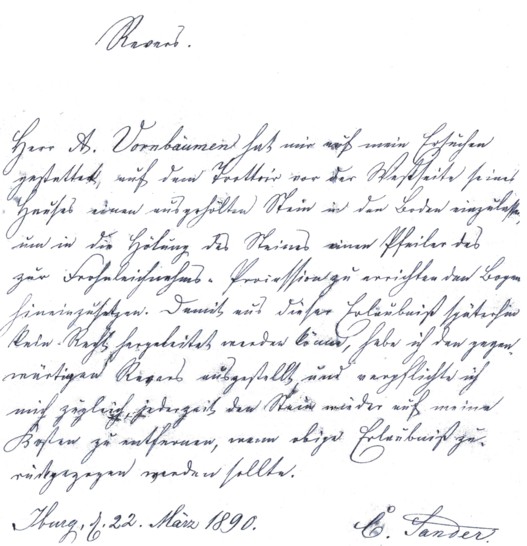 Revers.
Herr A. Vornbäumen hat mir auf mein Ersuchen
gestattet, auf dem Trottoir vor der Westseite seines
Hauses einen ausgehölten Stein in den Boden einzulassen,
um in die Hölung des Steines einen Pfeiler des
zur Frohnleichnams-Procession zu errichtenden Bogen
hineinzusetzen. Damit aus dieser Erlaubniß späterhin
kein Recht hergeleitet werden könne, habe ich den gegen-
wärtigen Revers ausgestellt und verpflichte ich
mich zugleich, jederzeit den Stein wieder auf meine
Kosten zu entfernen, wenn obige Erlaubniß zu-
rückgezogen werden sollte.
Iburg, d. 22. März 1890. C. Sander.